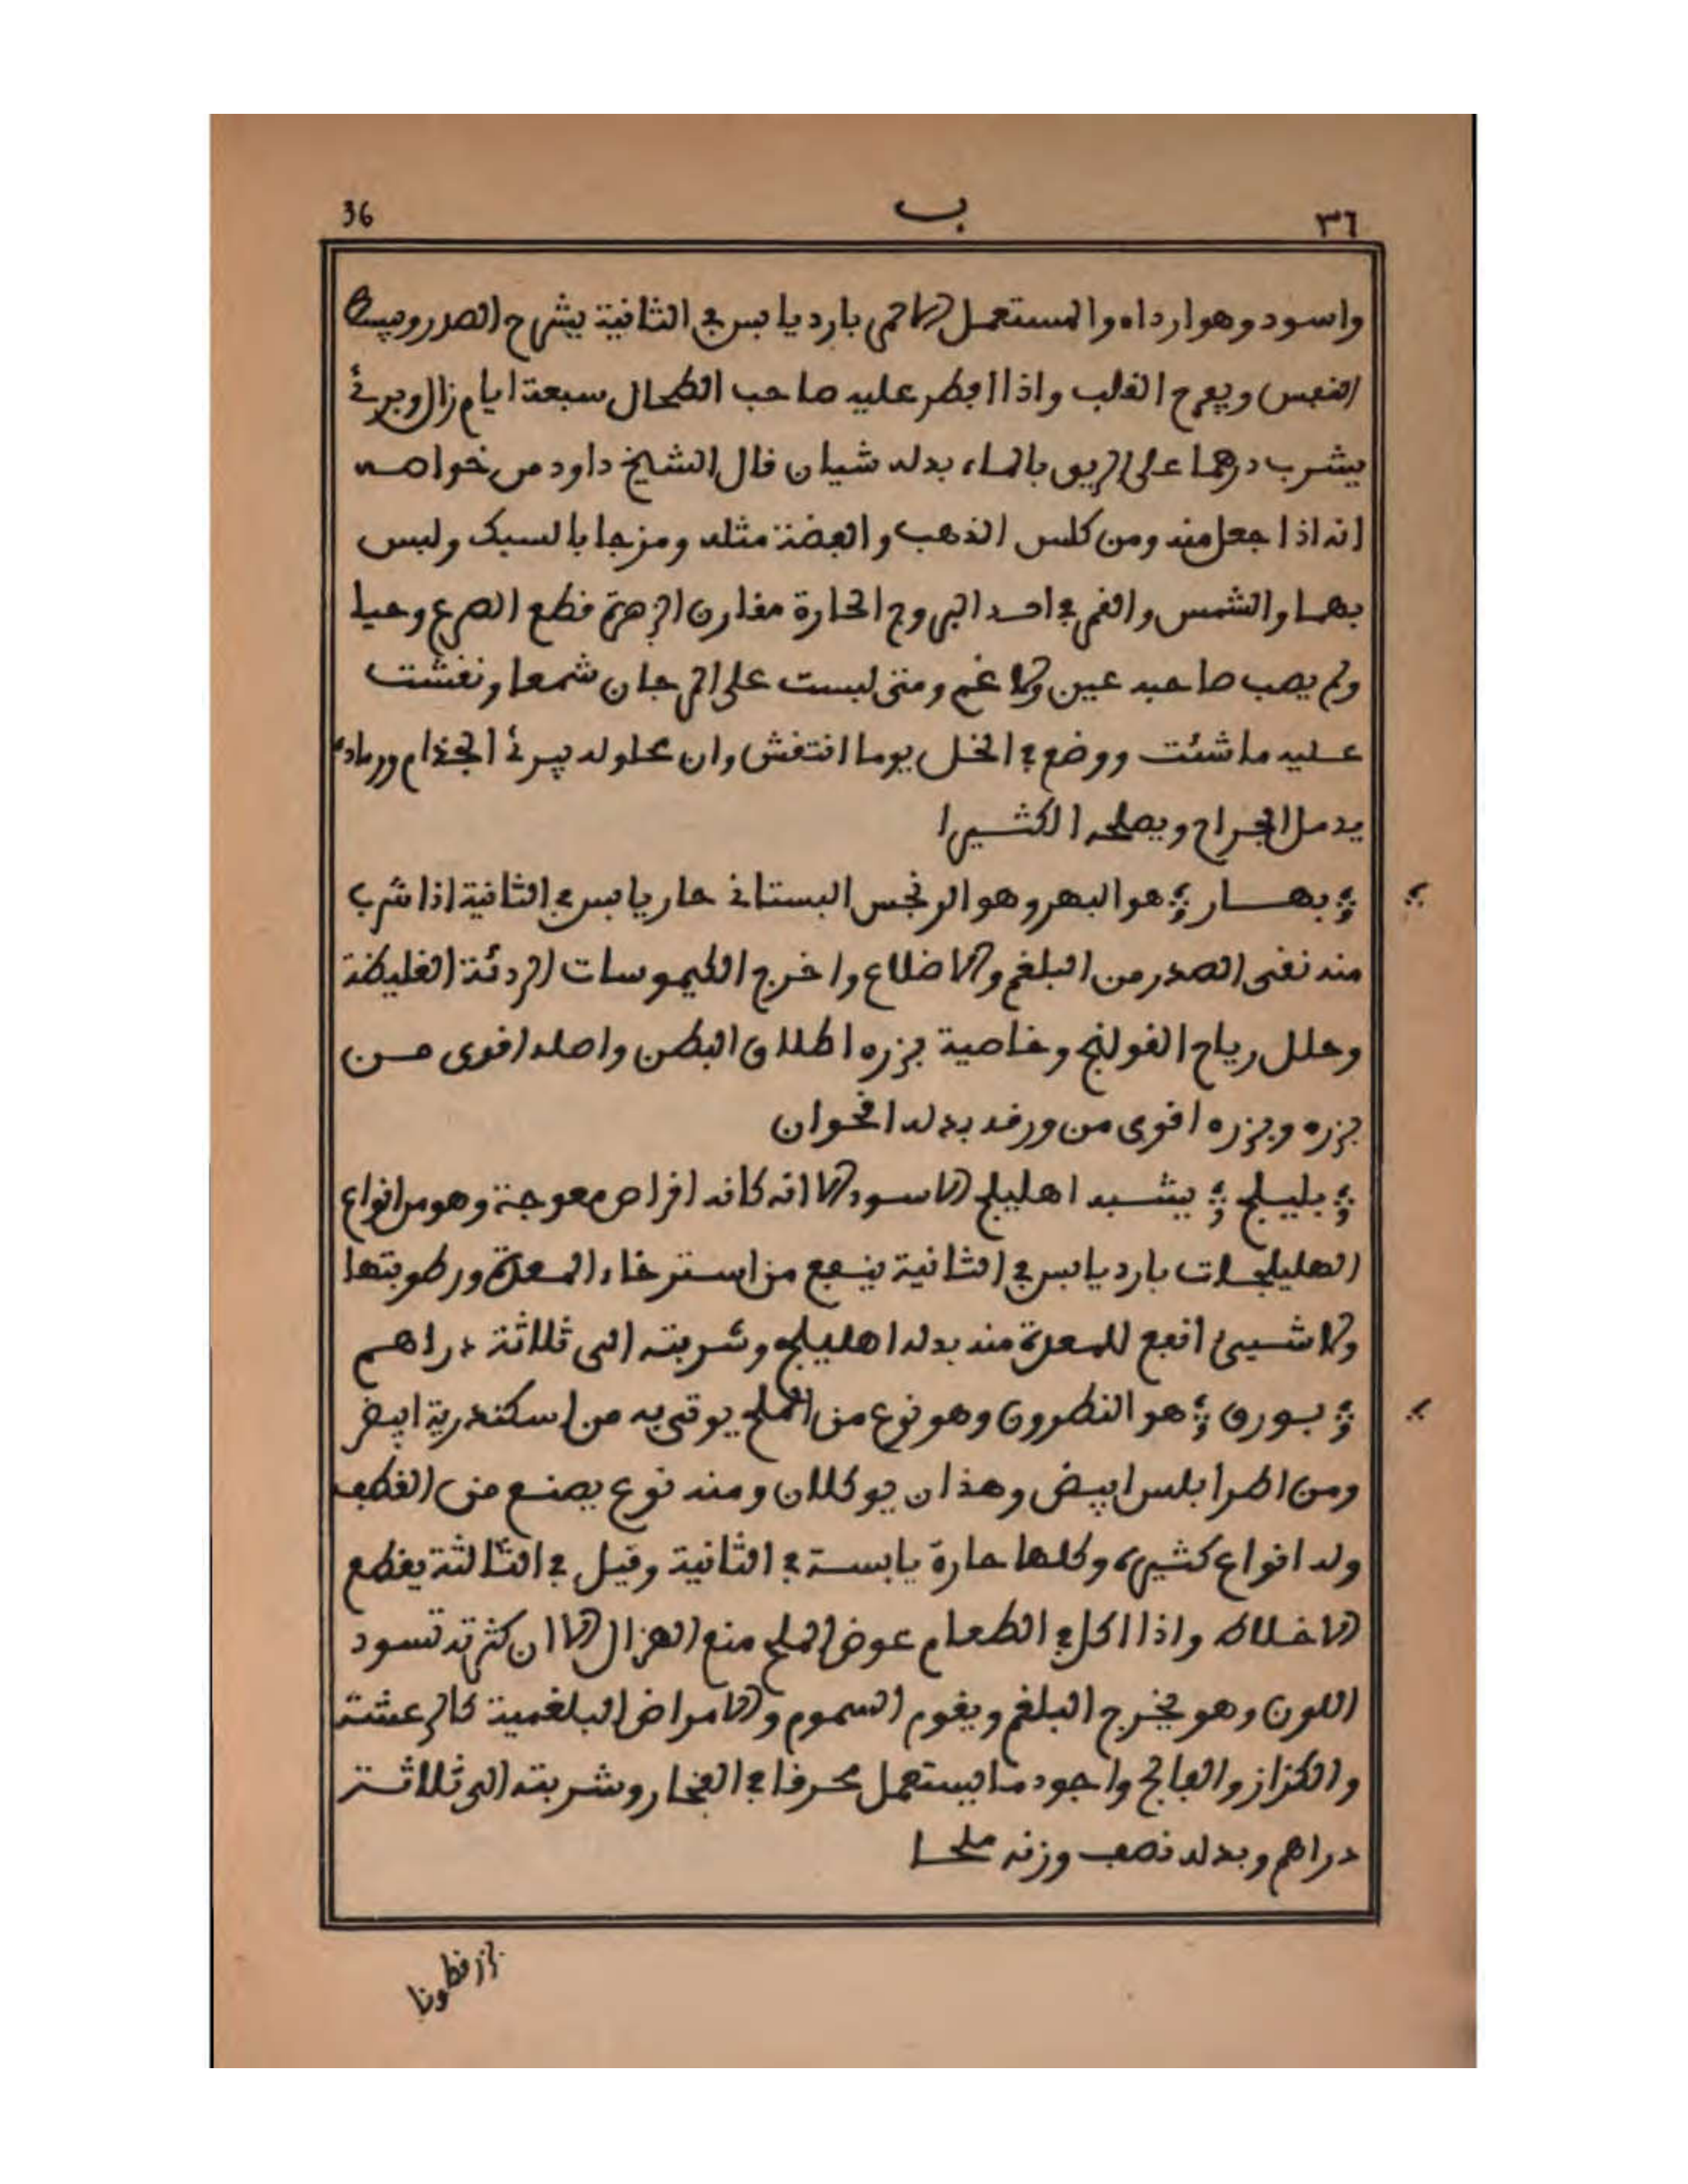 ٣٦ ب 36
واسود وهو ارداه والمستعمل الاحمر بارد يابس في الثانية يشرح الصدر ويبسط
النفس ويفرح القلب واذا افطر عليه صاحب الطحال سبعة ايام زال وبرئ
يشرب درهما على الريق بالماء بدله شيان قال الشيخ داود من خواصه
انه اذا جعل منه ومن كلس الذهب والفضة مثله ومزجا بالسبك ولبس
بهما والشمس والقمر في احد البروج الحارة مقارن الزهرة قطع الصرع وحيا
ولم يصب صاحبه عين ولا غم ومتى لبست على المرجان شمعا ونقشت
عليه ما شئت ووضع في الخل يوما انتقش وان محلوله يبرئ الجذام ورماده
يدمل الجراح ويصلحه الكثيرا
بهار هو البهر وهو الرنجس البستاني حار يابس في الثانية اذا شرب
منه نقى الصدر من البلغم والاضلاع واخرج الكيموسات الردئة الغليظة
وحلل رياح القولنج وخاصية بزره اطلاق البطن واصله اقوى من
بزره وبزره اقوى من ورقه بدله اقحوان
بليلج يشبه اهليلج الاسود الا انه كانه اقراص معوجة وهو من انواع
الهليلجات بارد يابس في الثانية ينفع من استرخاء المعدة ورطوبتها
ولا شيئ انفع للمعدة منه بدله اهليلج وشربته الى ثلاثة دراهم
بورق هو النطرون وهو نوع من الملح يوتى به من اسكندرية ابيض
ومن اطرابلس ابيض وهذان يوكلان ومنه نوع يصنع من القطف
وله انواع كثيرة وكلها حارة يابسة في الثانية وقيل في الثالثة يقطع
الاخلاط واذا اكل في الطعام عوض الملح منع الهزال الا ان كثرته تسود
اللون وهو يخرج البلغم ويقوم السموم والامراض البلغمية كالرعشة
والكزاز والفالج واجود ما يستعمل محرقا في الفخار وشربته الى ثلاثة
دراهم وبدله نصف وزنه ملحا
بزرقطونا